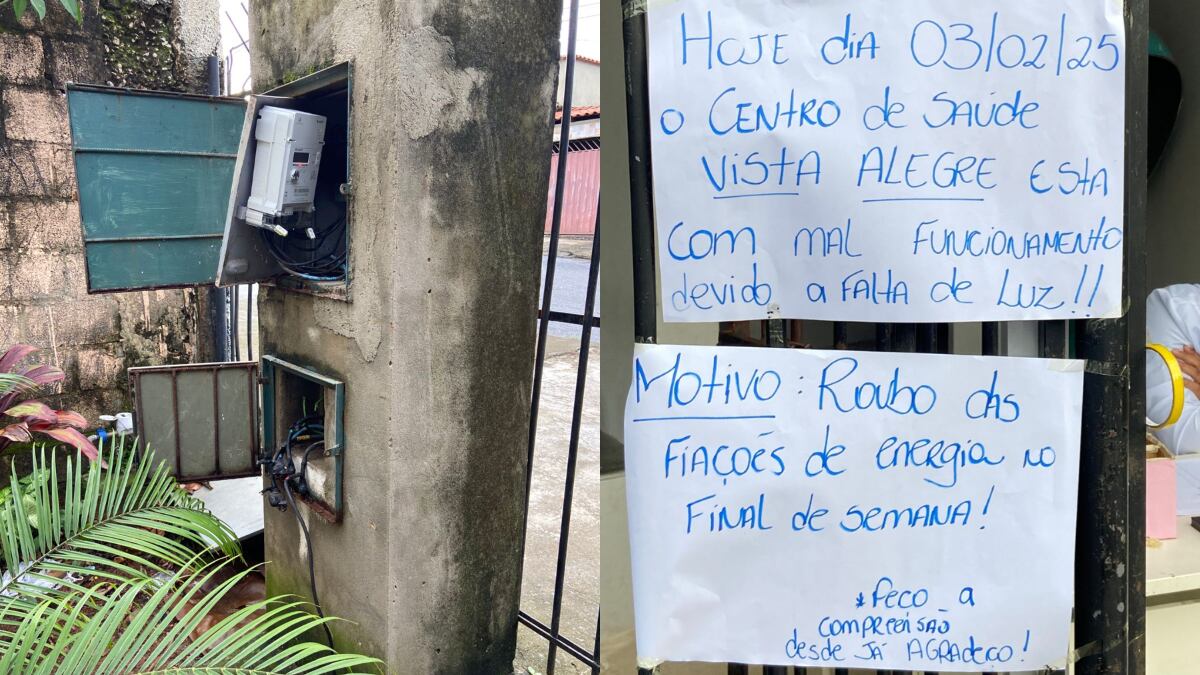 Hoje dia 03/02/25
o Centro de Saúde
Vista Alegre esta
com mal funcionamento
devido a falta de luz!!
Motivo: Roubo das
fiações de energia no
final de semana!
*Peço a
compreensão
desde já agradeço!